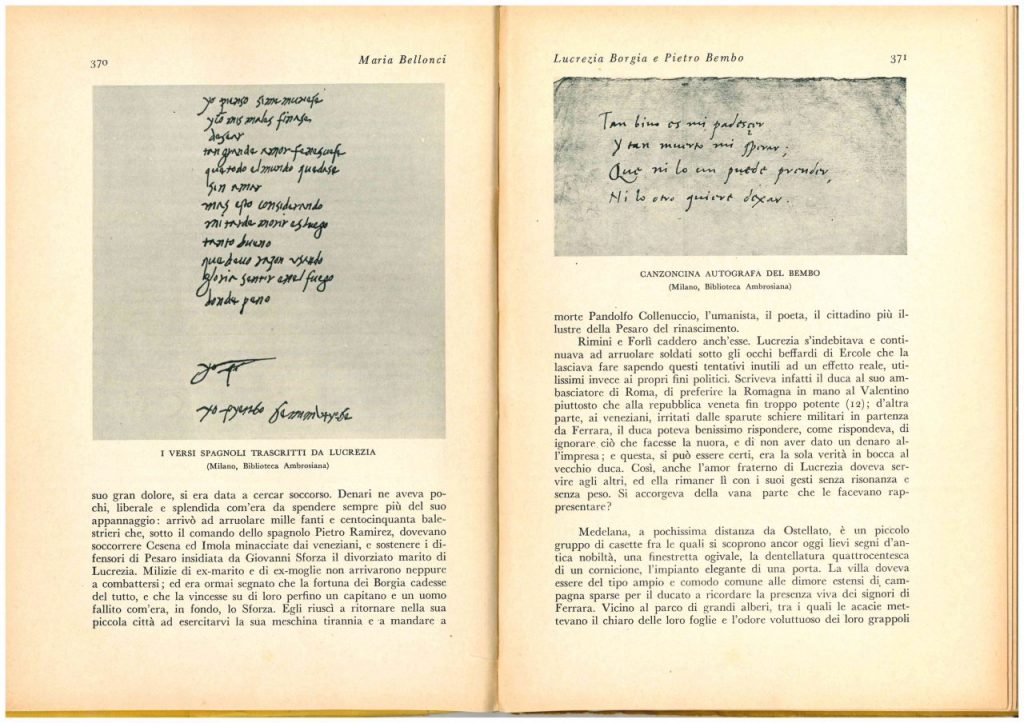 370
Maria Bellonci
yo pienso si me muriese
y co mis males finase
desear
tan grande amor fenesciese
que todo el mundo quedase
sin amar
mas esto considerando
mi tarde morir es luego
tanto bueno
que devo razon usando
gloria sentir en el fuego
donde peno
yo
yo pienso si me muriese
I VERSI SPAGNOLI TRASCRITTI DA LUCREZIA
(Milano, Biblioteca Ambrosiana)
suo gran dolore, si era data a cercar soccorso. Denari ne aveva po-
chi, liberale e splendida com'era da spendere sempre più del suo
appannaggio: arrivò ad arruolare mille fanti e centocinquanta bale-
strieri che, sotto il comando dello spagnolo Pietro Ramirez, dovevano
soccorrere Cesena ed Imola minacciate dai veneziani, e sostenere i di-
fensori di Pesaro insidiata da Giovanni Sforza il divorziato marito di
Lucrezia. Milizie di ex-marito e di ex-moglie non arrivarono neppure
a combattersi; ed era ormai segnato che la fortuna dei Borgia cadesse
del tutto, e che la vincesse su di loro perfino un capitano e un uomo
fallito com'era, in fondo, lo Sforza. Egli riuscì a ritornare nella sua
piccola città ad esercitarvi la sua meschina tirannia e a mandare a
Lucrezia Borgia e Pietro Bembo
371
Tan bivo es mi padesçer
Y tan muerto mi sperar;
Que ni lo un puede prender,
Ni lo otro quiere dexar.
CANZONCINA AUTOGRAFA DEL BEMBO
(Milano, Biblioteca Ambrosiana)
morte Pandolfo Collenuccio, l'umanista, il poeta, il cittadino più il-
lustre della Pesaro del rinascimento.
Rimini e Forlì caddero anch'esse. Lucrezia s'indebitava e conti-
nuava ad arruolare soldati sotto gli occhi beffardi di Ercole che la
lasciava fare sapendo questi tentativi inutili ad un effetto reale, uti-
lissimi invece ai propri fini politici. Scriveva infatti il duca al suo am-
basciatore di Roma, di preferire la Romagna in mano al Valentino
piuttosto che alla repubblica veneta fin troppo potente (12); d'altra
parte, ai veneziani, irritati dalle sparute schiere militari in partenza
da Ferrara, il duca poteva benissimo rispondere, come rispondeva, di
ignorare ciò che facesse la nuora, e di non aver dato un denaro al-
l'impresa; e questa, si può essere certi, era la sola verità in bocca al
vecchio duca. Così, anche l'amor fraterno di Lucrezia doveva ser-
vire agli altri, ed ella rimaner lì con i suoi gesti senza risonanza e
senza peso. Si accorgeva della vana parte che le facevano rap-
presentare?
Medelana, a pochissima distanza da Ostellato, è un piccolo
gruppo di casette fra le quali si scoprono ancor oggi lievi segni d'an-
tica nobiltà, una finestretta ogivale, la dentellatura quattrocentesca
di un cornicione, l'impianto elegante di una porta. La villa doveva
essere del tipo ampio e comodo comune alle dimore estensi di cam-
pagna sparse per il ducato a ricordare la presenza viva dei signori di
Ferrara. Vicino al parco di grandi alberi, tra i quali le acacie met-
tevano il chiaro delle loro foglie e l'odore voluttuoso dei loro grappoli